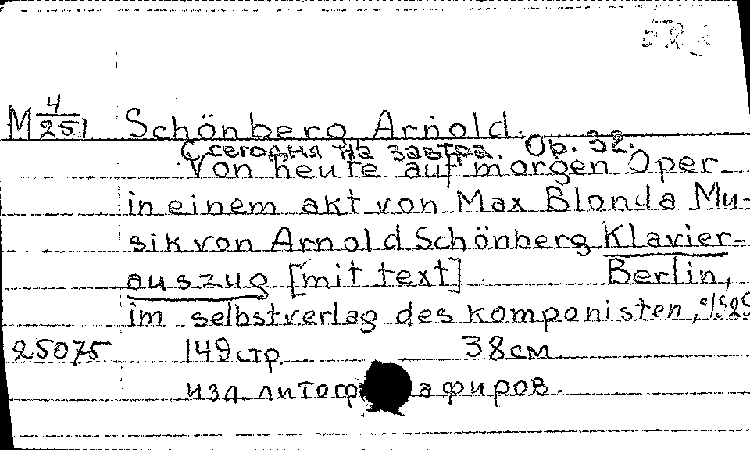 M 4/251 Schönberg Arnold.
Сегодня на завтра. Op. 32.
Von heute auf morgen Oper
in einem akt von Max Blonda Mu-
sik von Arnold Schönberg Klavier-
auszug [mit text] Berlin,
im selbstverlag des komponisten,
25075 149 стр. 38 см.
изд. литографиров.